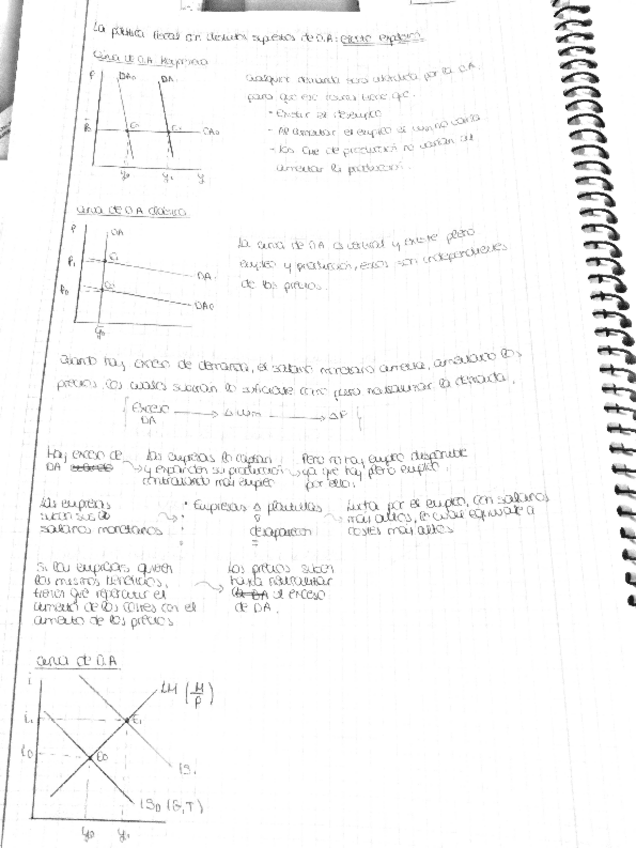 La política fiscal con distintos supuestos de OA: efecto expulsión.
Curva de OA Keynesiana
P
DA₀
DA₁
Cualquier demanda será satisfecha por la OA,
para que eso ocurra tiene q:
- Existir el desempleo
- Al aumentar el empleo el no varía
P₀
E₀
E₁
OA₀
- Los de producción no varían al
aumentar la producción.
y₀
y₁
y
Curva de OA clásica
P
OA
La curva de OA es vertical y existe pleno
empleo y producción, estos son independientes
de los precios.
P₁
E₁
DA₁
P₀
E₀
DA₀
y₀
Cuanto hay exceso de demanda, el salario monetario aumenta, aumentando los
precios, los cuales subirán lo suficiente como para neutralizar la demanda.
Exceso DA → Δ Wm → ΔP
Hay exceso de DA
las empresas lo captan y expanden su producción contratando más empleo
Pero no hay empleo disponible ya que hay pleno empleo, por ello,
Las empresas suben sus salarios monetarios
• Empresas Δ plantillas
o
desaparecen
lucha por el empleo, con salarios más altos, lo cual equivale a costes más altos
Si las empresas quieren los mismos beneficios, tienen que repercutir el aumento de los costes con el aumento de los precios
Los precios suben hasta neutralizar el exceso de DA.
Curva de DA
i
LM (M/P)
i₁
E₁
i₀
E₀
IS₁
IS₀ (G,T)
y₀
y₁